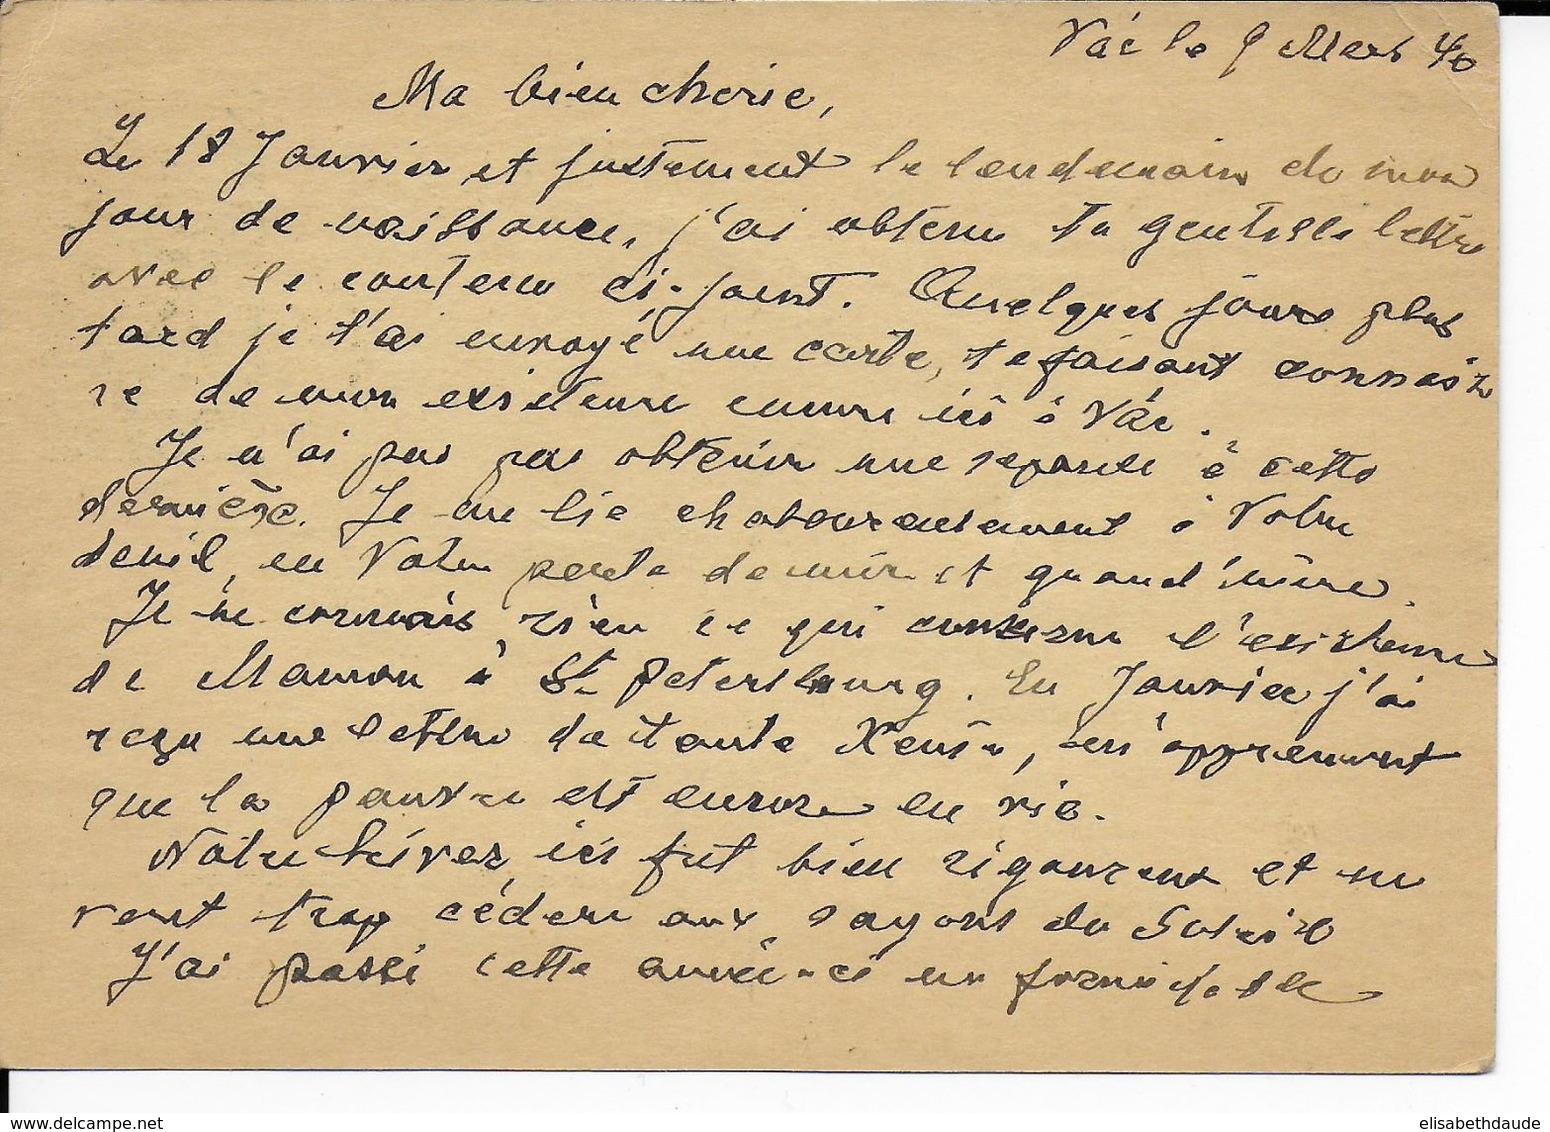 Vác le 9 Mars 40
Ma bien cherie,
Le 18 Janvier et justement le lendemain de mon
jour de naissance, j'ai obtenu ta gentille lettre
avec le contenu ci-joint. Quelques jours plus
tard je t'ai envoyé une carte, te faisant connaiz
re de mon existence encore ici à Vác.
Je n'ai pas pas obtenir une reponse à cette
dernière. Je me lie chaleureusement à Votre
deuil, en Votre perte de mère et grand'mère.
Je ne connais rien ce qui concerne l'existence
de Maman à St. Petersbourg. En Janvier j'ai
reçu une lettre de tante Xenia, m'apprenant
que la pauvre est encore en vie.
Notre hiver ici fut bien rigoureux et ne
veut trop céder aux rayons du Soleil
J'ai passé cette année-ci un formidable
www.delcampe.net
elisabethdaude